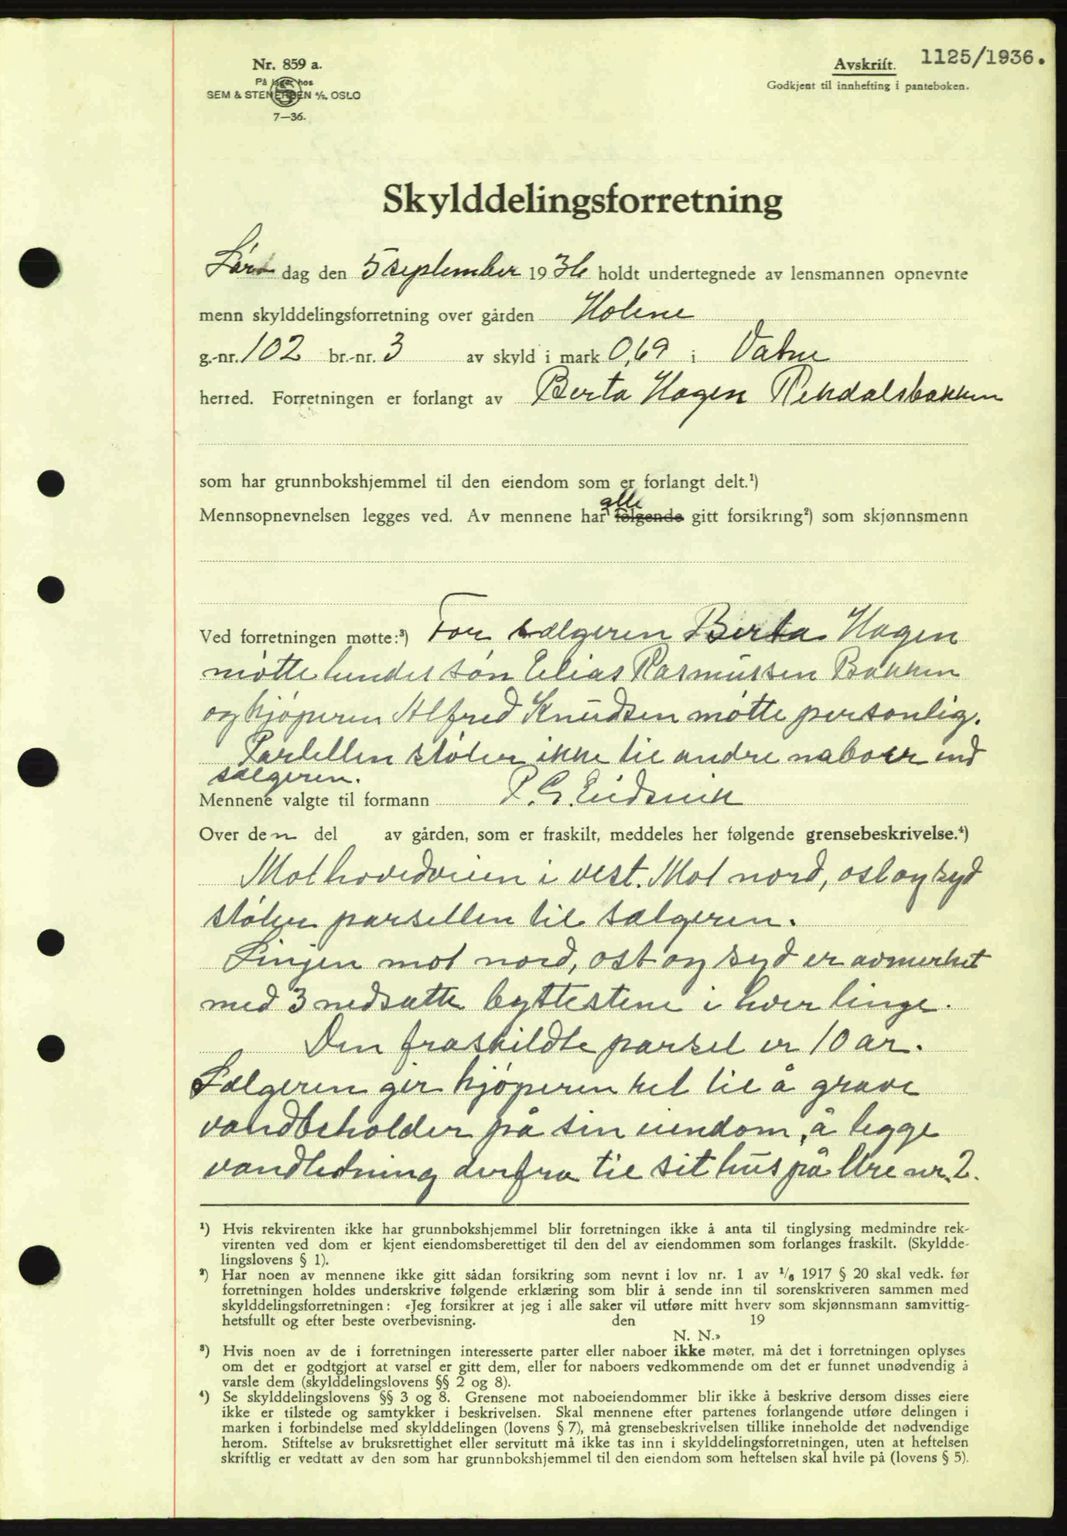 Nr. 859 a.
På lager hos
SEM & STENERSEN A/S, OSLO
7—36.
Avskrift.
1125/1936.
Godkjent til innhefting i panteboken.
Skylddelingsforretning
Lør dag den 5 september 1936 holdt undertegnede av lensmannen opnevnte
menn skylddelingsforretning over gården Holene
g.-nr. 102 br.-nr. 3 av skyld i mark 0,69 i Vatne
herred. Forretningen er forlangt av Berta Hagen Rekdalsbakken
som har grunnbokshjemmel til den eiendom som er forlangt delt.¹)
alle
Mennsopnevnelsen legges ved. Av mennene har følgende gitt forsikring²) som skjønnsmenn
Ved forretningen møtte:³) For sælgeren Berta Hagen
møtte hendes søn Elias Rasmussen Bakken
og kjøperen Alfred Knudsen møtte personlig.
Parsellen støter ikke til andre naboer end
sælgeren.
Mennene valgte til formann P. G. Eidsvik
Over den del av gården, som er fraskilt, meddeles her følgende grensebeskrivelse.⁴)
Mot hovedveien i vest. Mot nord, ost og syd
støter parsellen til sælgeren.
Linjen mot nord, ost og syd er avmerket
med 3 nedsatte byttestene i hver linge.
Den fraskildte parsel er 10 ar.
Sælgeren gir kjøperen ret til å grave
vandbeholder på sin eiendom, å legge
vandledning derfra til sit hus på Utre nr. 2.
¹) Hvis rekvirenten ikke har grunnbokshjemmel blir forretningen ikke å anta til tinglysing medmindre rek-
virenten ved dom er kjent eiendomsberettiget til den del av eiendommen som forlanges fraskilt. (Skyldde-
lingslovens § 1).
²) Har noen av mennene ikke gitt sådan forsikring som nevnt i lov nr. 1 av ¹/₆ 1917 § 20 skal vedk. før
forretningen holdes underskrive følgende erklæring som blir å sende inn til sorenskriveren sammen med
skylddelingsforretningen: «Jeg forsikrer at jeg i alle saker vil utføre mitt hverv som skjønnsmann samvittig-
hetsfullt og efter beste overbevisning. den 19
N. N.»
³) Hvis noen av de i forretningen interesserte parter eller naboer ikke møter, må det i forretningen oplyses
om det er godtgjort at varsel er gitt dem, eller for naboers vedkommende om det er funnet unødvendig å
varsle dem (skylddelingslovens §§ 2 og 8).
⁴) Se skylddelingslovens §§ 3 og 8. Grensene mot naboeiendommer blir ikke å beskrive dersom disses eiere
ikke er tilstede og samtykker i beskrivelsen. Skal mennene efter partenes forlangende utføre delingen i
marken i forbindelse med skylddelingen (lovens § 7), må grensebeskrivelsen tillike inneholde det nødvendige
herom. Stiftelse av bruksrettighet eller servitutt må ikke tas inn i skylddelingsforretningen, uten at heftelsen
skriftlig er vedtatt av den som har grunnbokshjemmel til den eiendom som heftelsen skal hvile på (lovens § 5).